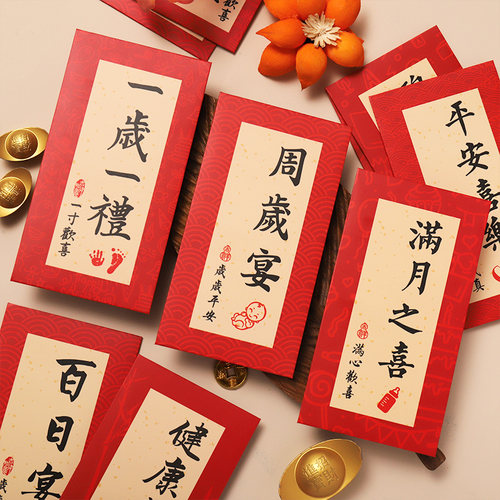 歡喜
一歲一禮
一寸歡喜
周歲宴
歲歲平安
滿月之喜
滿心歡喜
平安喜樂
百日宴
健康